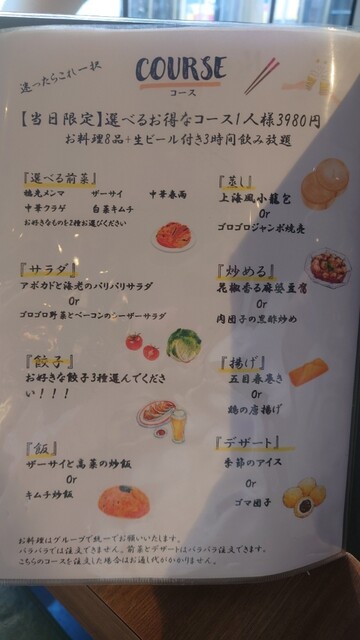 迷ったらこれ一択
COURSE
コース
【当日限定】選べるお得なコース1人様3980円
お料理8品+生ビール付き3時間飲み放題
『選べる前菜』
穂先メンマ ザーサイ 中華春雨
中華クラゲ 白菜キムチ
お好きなものを2種お選びください
『蒸し』
上海風小籠包
Or
ゴロゴロジャンボ焼売
『サラダ』
アボカドと海老のパリパリサラダ
Or
ゴロゴロ野菜とベーコンのシーザーサラダ
『炒める』
花椒香る麻婆豆腐
Or
肉団子の黒酢炒め
『餃子』
お好きな餃子3種選んでくださ
い!!!
『揚げ』
五目春巻き
Or
鶏の唐揚げ
『飯』
ザーサイと高菜の炒飯
Or
キムチ炒飯
『デザート』
季節のアイス
Or
ゴマ団子
お料理はグループで統一でお願いいたします。
バラバラでは注文できません。前菜とデザートはバラバラ注文できます。
こちらのコースを注文した場合はお通し代がかかりません。